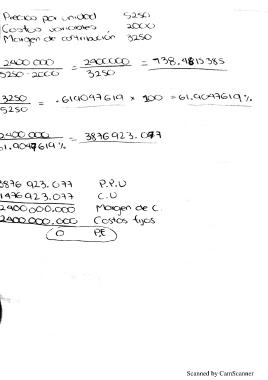 Precios por unidad 5250
Costos variables 2000
Margen de contribución 3250
2400 000 = 2400000 = 738.4615385
5250 - 2000 3250
3250 = .619047619 x 100 = 61.9047619%
5250
2400 000 = 3876923.077
61.9047619%
3876 923.077 P.P.U
1476923.077 C.U
2400 000.000 Margen de C.
2400000.000 Costos fijos
0 PE
Scanned by CamScanner